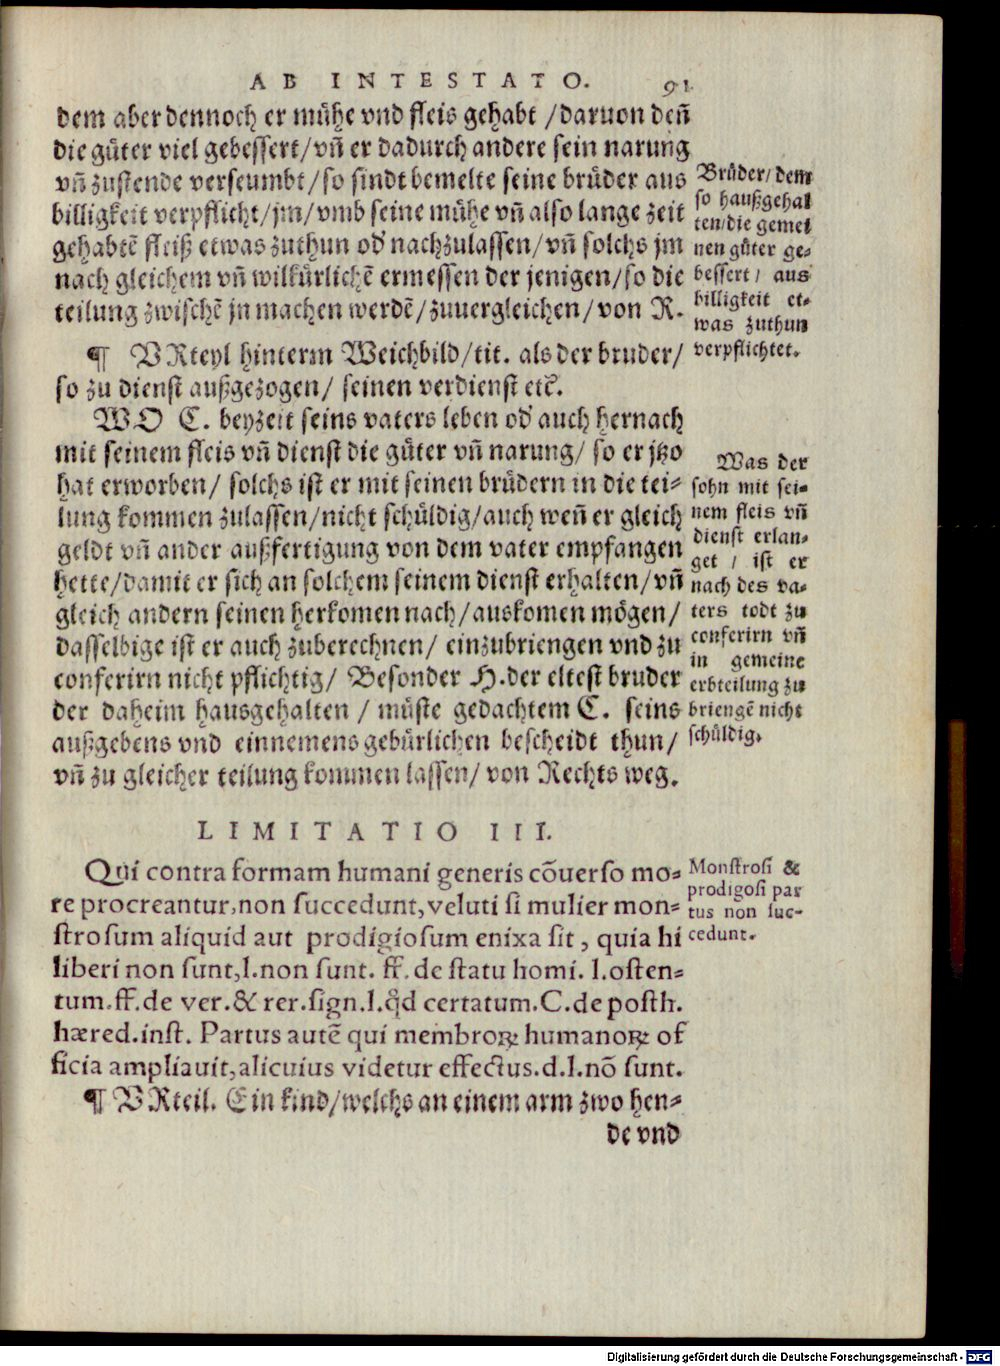 AB INTESTATO. 91
dem aber dennoch er mühe vnd fleis gehabt /daruon den̄
die güter viel gebessert/vn̄ er dadurch andere sein narung
vn̄ zustende verseumbt/so sindt bemelte seine brüder aus
billigkeit verpflicht/jm/vmb seine mühe vn̄ also lange zeit
gehabtē fleiß etwas zuthun od' nachzulassen/vn̄ solchs jm
nach gleichem vn̄ wilkürlichē ermessen der jenigen/so die
teilung zwischē jn machen werdē/zuuergleichen/von R.
Brüder/dem
so haußgehal
ten/die gemei
nen güter ge⸗
bessert/ aus
billigkeit et⸗
was zuthun
verpflichtet.
¶ VRteyl hinterm Weichbild/tit. als der bruder/
so zu dienst außgezogen/ seinen verdienst etc̃.
WO C. beyzeit seins vaters leben od' auch hernach
mit seinem fleis vn̄ dienst die güter vn̄ narung/ so er jtzo
hat erworben/ solchs ist er mit seinen brüdern in die tei⸗
lung kommen zulassen/nicht schüldig/auch wen̄ er gleich
geldt vn̄ ander außfertigung von dem vater empfangen
hette/damit er sich an solchem seinem dienst erhalten/vn̄
gleich andern seinen herkomen nach/auskomen mögen/
dasselbige ist er auch zuberechnen/ einzubriengen vnd zu
conferirn nicht pflichtig/ Besonder H.der eltest bruder
der daheim hausgehalten / müste gedachtem C. seins
außgebens vnd einnemens gebürlichen bescheidt thun/
vn̄ zu gleicher teilung kommen lassen/von Rechts weg.
Was der
sohn mit sei⸗
nem fleis vn̄
dienst erlan⸗
get / ist er
nach des va⸗
ters todt zu
conferirn vn̄
in gemeine
erbteilung zu
briengē nicht
schüldig.
LIMITATIO III.
Qui contra formam humani generis cōuerso mo⸗
re procreantur,non succedunt,veluti si mulier mon⸗
strosum aliquid aut prodigiosum enixa sit, quia hi
liberi non sunt,l.non sunt. ff. de statu homi. l.osten⸗
tum.ff.de ver.& rer.sign.l.q̃d certatum.C.de posth.
hæred.inst. Partus autē qui membroꝝ humanoꝝ of
ficia ampliauit,alicuius videtur effectus.d.l.nō sunt.
Monstrosi &
prodigosi par
tus non suc⸗
cedunt.
¶ VRteil. Ein kind/welchs an einem arm zwo hen⸗
de vnd
Digitalisierung gefördert durch die Deutsche Forschungsgemeinschaft - DFG